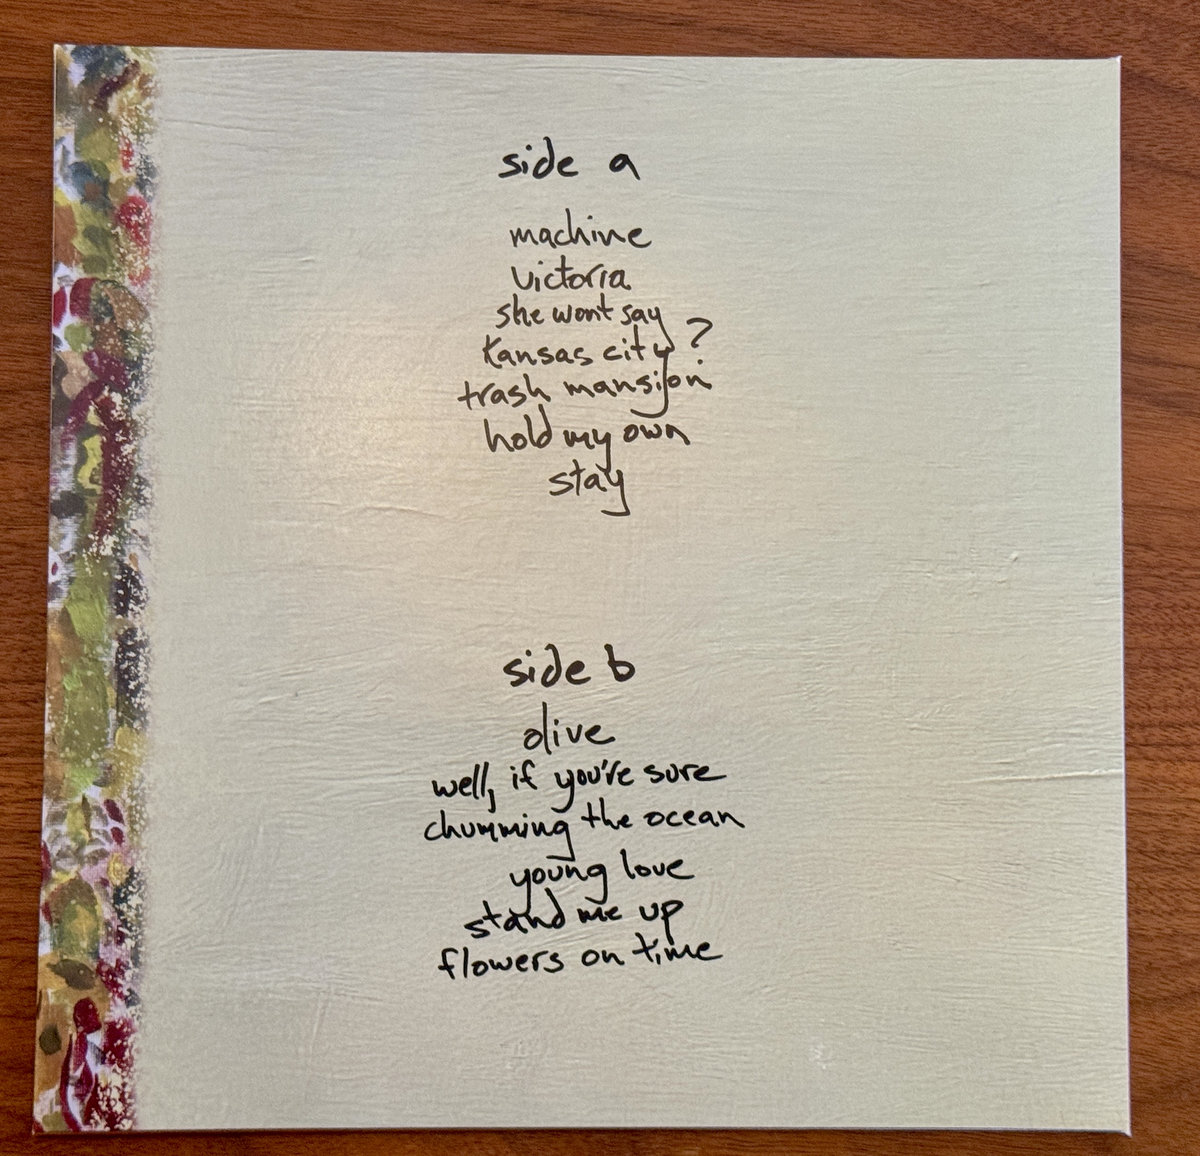 side a
machine
victoria
she wont say
kansas city?
trash mansion
hold my own
stay
side b
olive
well, if you're sure
chumming the ocean
young love
stand me up
flowers on time